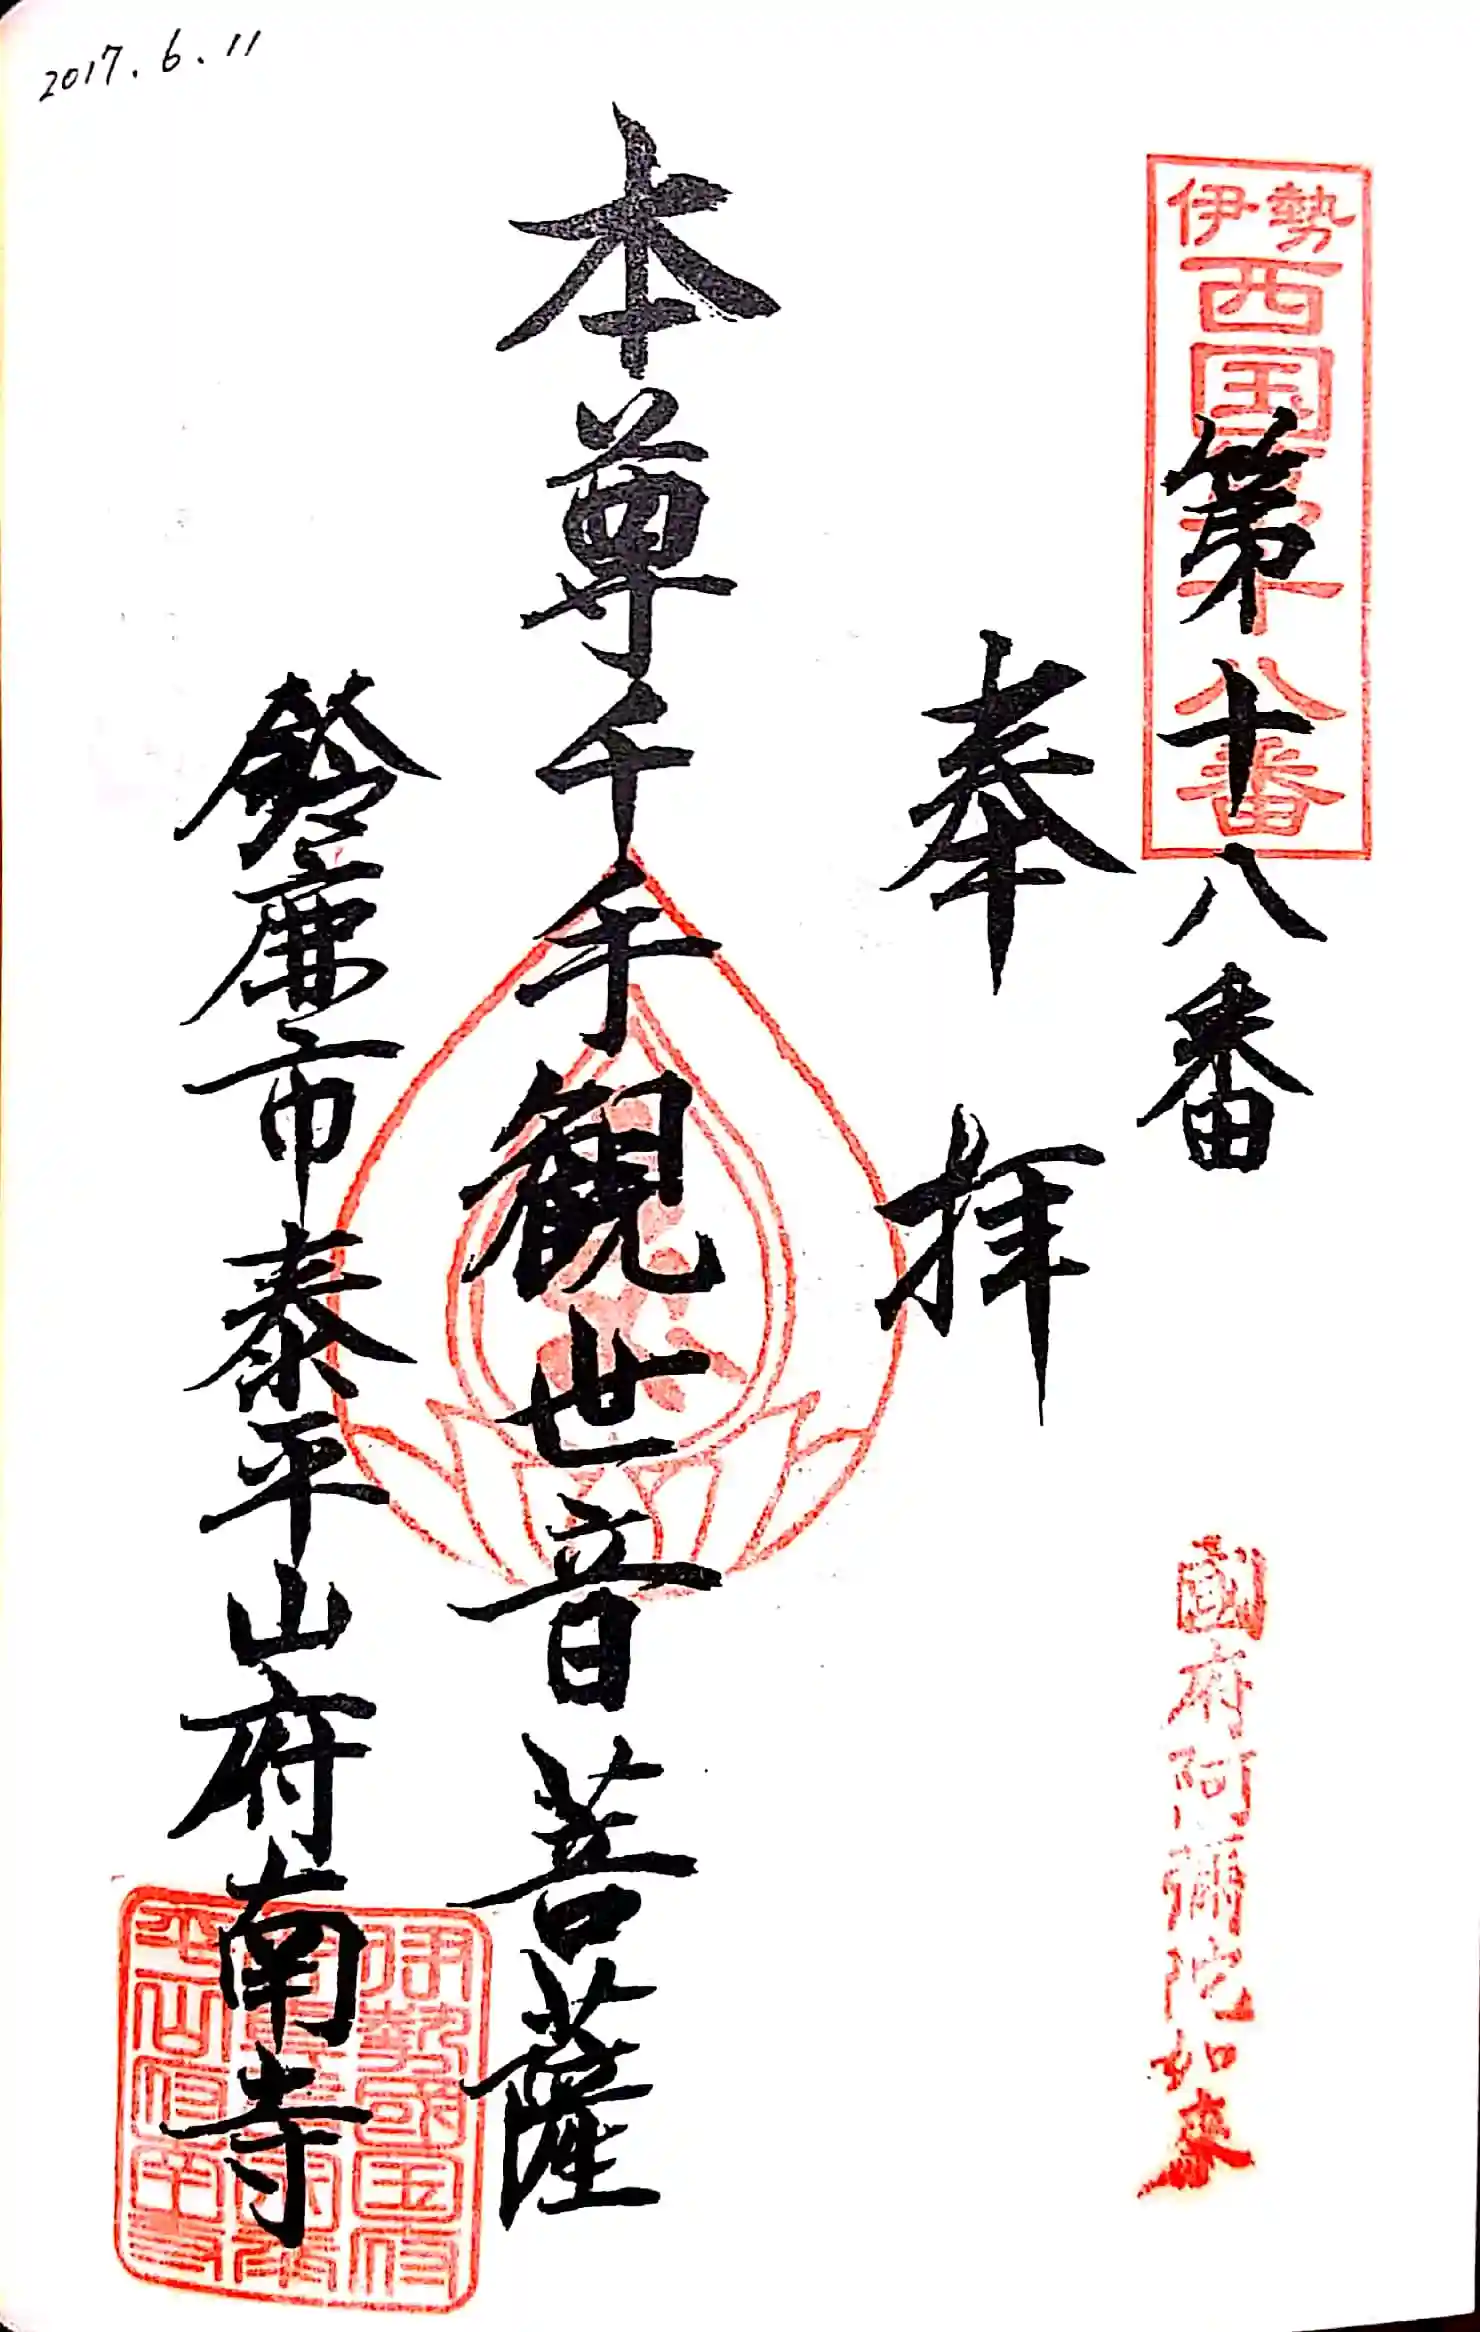 2017.6.11
伊勢西国第十八番
第十八番
奉拝
本尊千手観世音菩薩
鈴鹿市泰平山府南寺
國府阿彌陀如来